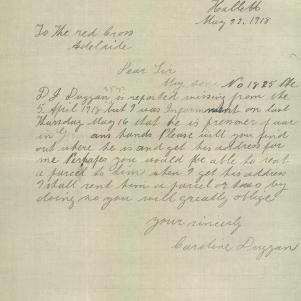 Hallett
May 22, 1918
To The red Cross
Adelaide
Dear Sir
My son No 1825 Pte
D J Duggan is reported missing from the
5 April 1918 but I was Informment on last
Thursday May 16 that he is prisoner of war
in Germans hands Please will you find
out where he is and get his address for
me Perhaps you would be able to sent
a parcel to him when I get his address
I shall sent him a parcel or two by
doing so you will greatly oblige
your sincerly
Caroline Duggan